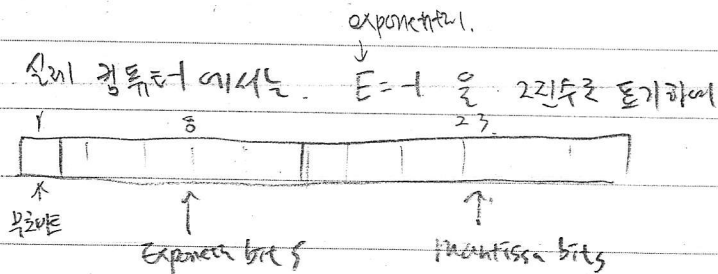 exponent라.
실제 컴퓨터에서는. E=-1 을 2진수로 표기하여
1 8 23.
부호비트
Exponent bits mantissa bits